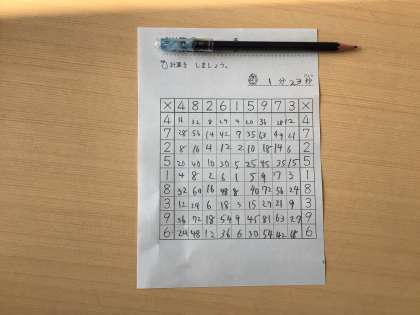 計算を しましょう。
1 分 23 秒
× 4 8 2 6 1 5 9 7 3 ×
4 16 32 8 24 4 20 36 28 12 4
7 28 56 14 42 7 35 63 49 21 7
2 8 16 4 12 2 10 18 14 6 2
5 20 40 10 30 5 25 45 35 15 5
1 4 8 2 6 1 5 9 7 3 1
8 32 64 16 48 8 40 72 56 24 8
3 12 24 6 18 3 15 27 21 9 3
9 36 72 18 54 9 45 81 63 27 9
6 24 48 12 36 6 30 54 42 18 6